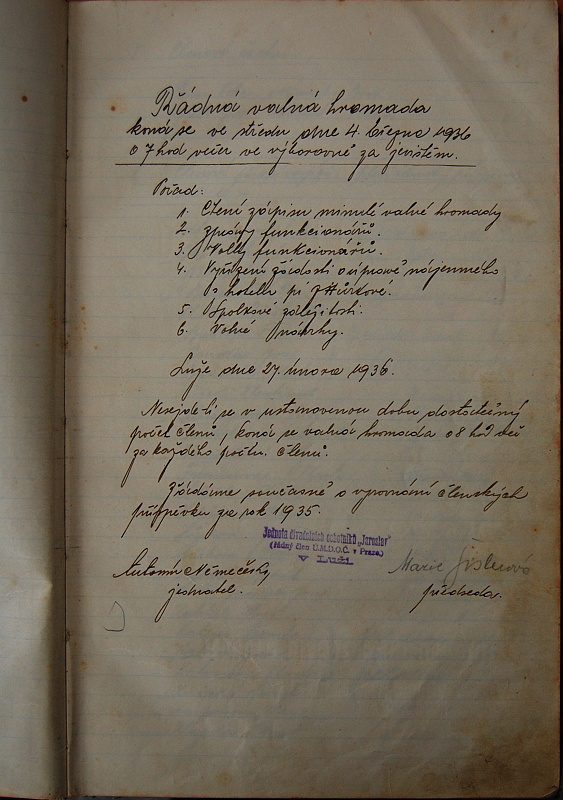 Řádná valná hromada
koná se ve středu dne 4. března 1936
o 7 hod večer ve výborovně za jevištěm.
Pořad:
1. Čtení zápisu minulé valné hromady
2. zprávy funkcionářů.
3. Volby funkcionářů.
4. Vyřízení žádosti o úpravě nájemného
s hotelu pí
5. Spolkové záležitosti.
6. Volné návrhy.
Luže dne 27. února 1936.
Nesejde-li se v ustanovenou dobu dostatečný
počet členů, koná se valná hromada o 8 hod več
za každého počtu členů.
Žádáme současně o vyrovnání členských
příspěvku za rok 1935.
Jednota divadelních ochotníků „Jaroslav"
(řádný člen Ú.M.D.O.Č. v Praze)
v Luži
Antonín
jednatel.
Marie
předseda.